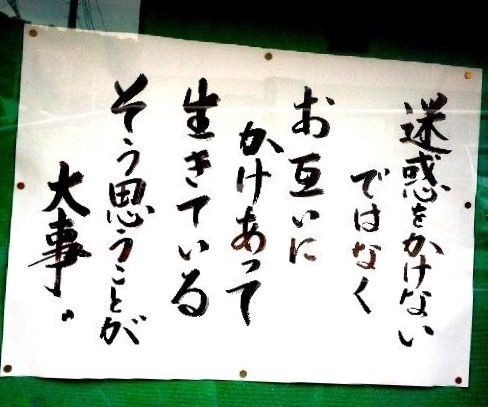 迷惑をかけない
ではなく
お互いに
かけあって
生きている
そう思うことが
大事。